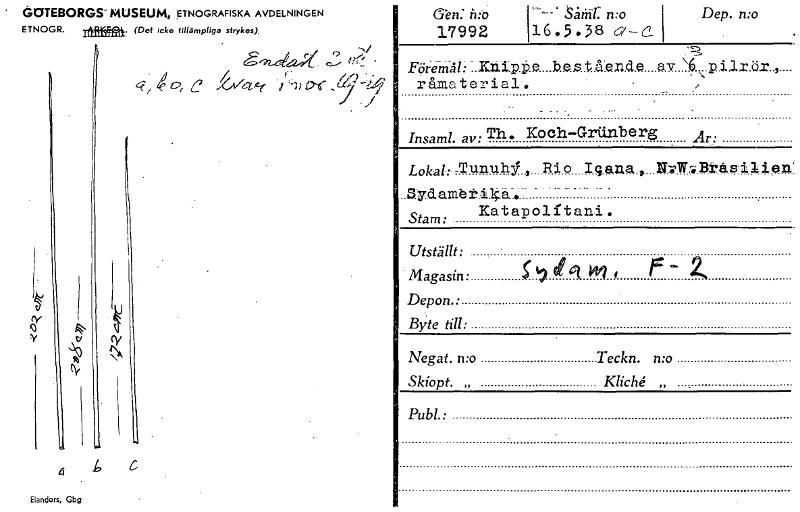 GÖTEBORGS MUSEUM, ETNOGRAFISKA AVDELNINGEN
ETNOGR. ARKEOL. (Det icke tillämpliga strykes).
Endast 3 st!
a, b o, c kvar inor
202 cm
208 cm
172 cm
a b c
Elanders, Gbg
Gen. n:o Saml. n:o Dep. n:o
17992 16.5.38 a-c
3
Föremål: Knippe bestående av 6 pilrör,
råmaterial.
Insaml. av: Th. Koch-Grünberg År:
Lokal: Tunuhý, Rio Içana, N.W.Brasilien
Sydamerika.
Stam: Katapolítani.
Utställt:
Magasin: Sydam. F-2
Depon.:
Byte till:
Negat. n:o Teckn. n:o
Skiopt. „ Kliché „
Publ.: